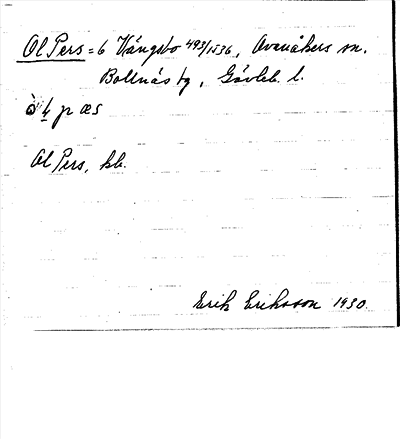 Ol Pers = 6 Vängsbo 493/1536, Ovanåkers sn.
Bollnäs tg, Gävleb. l.
ò̀ḷ pæs
Ol Pers, kb.
Erik Eriksson 1930.